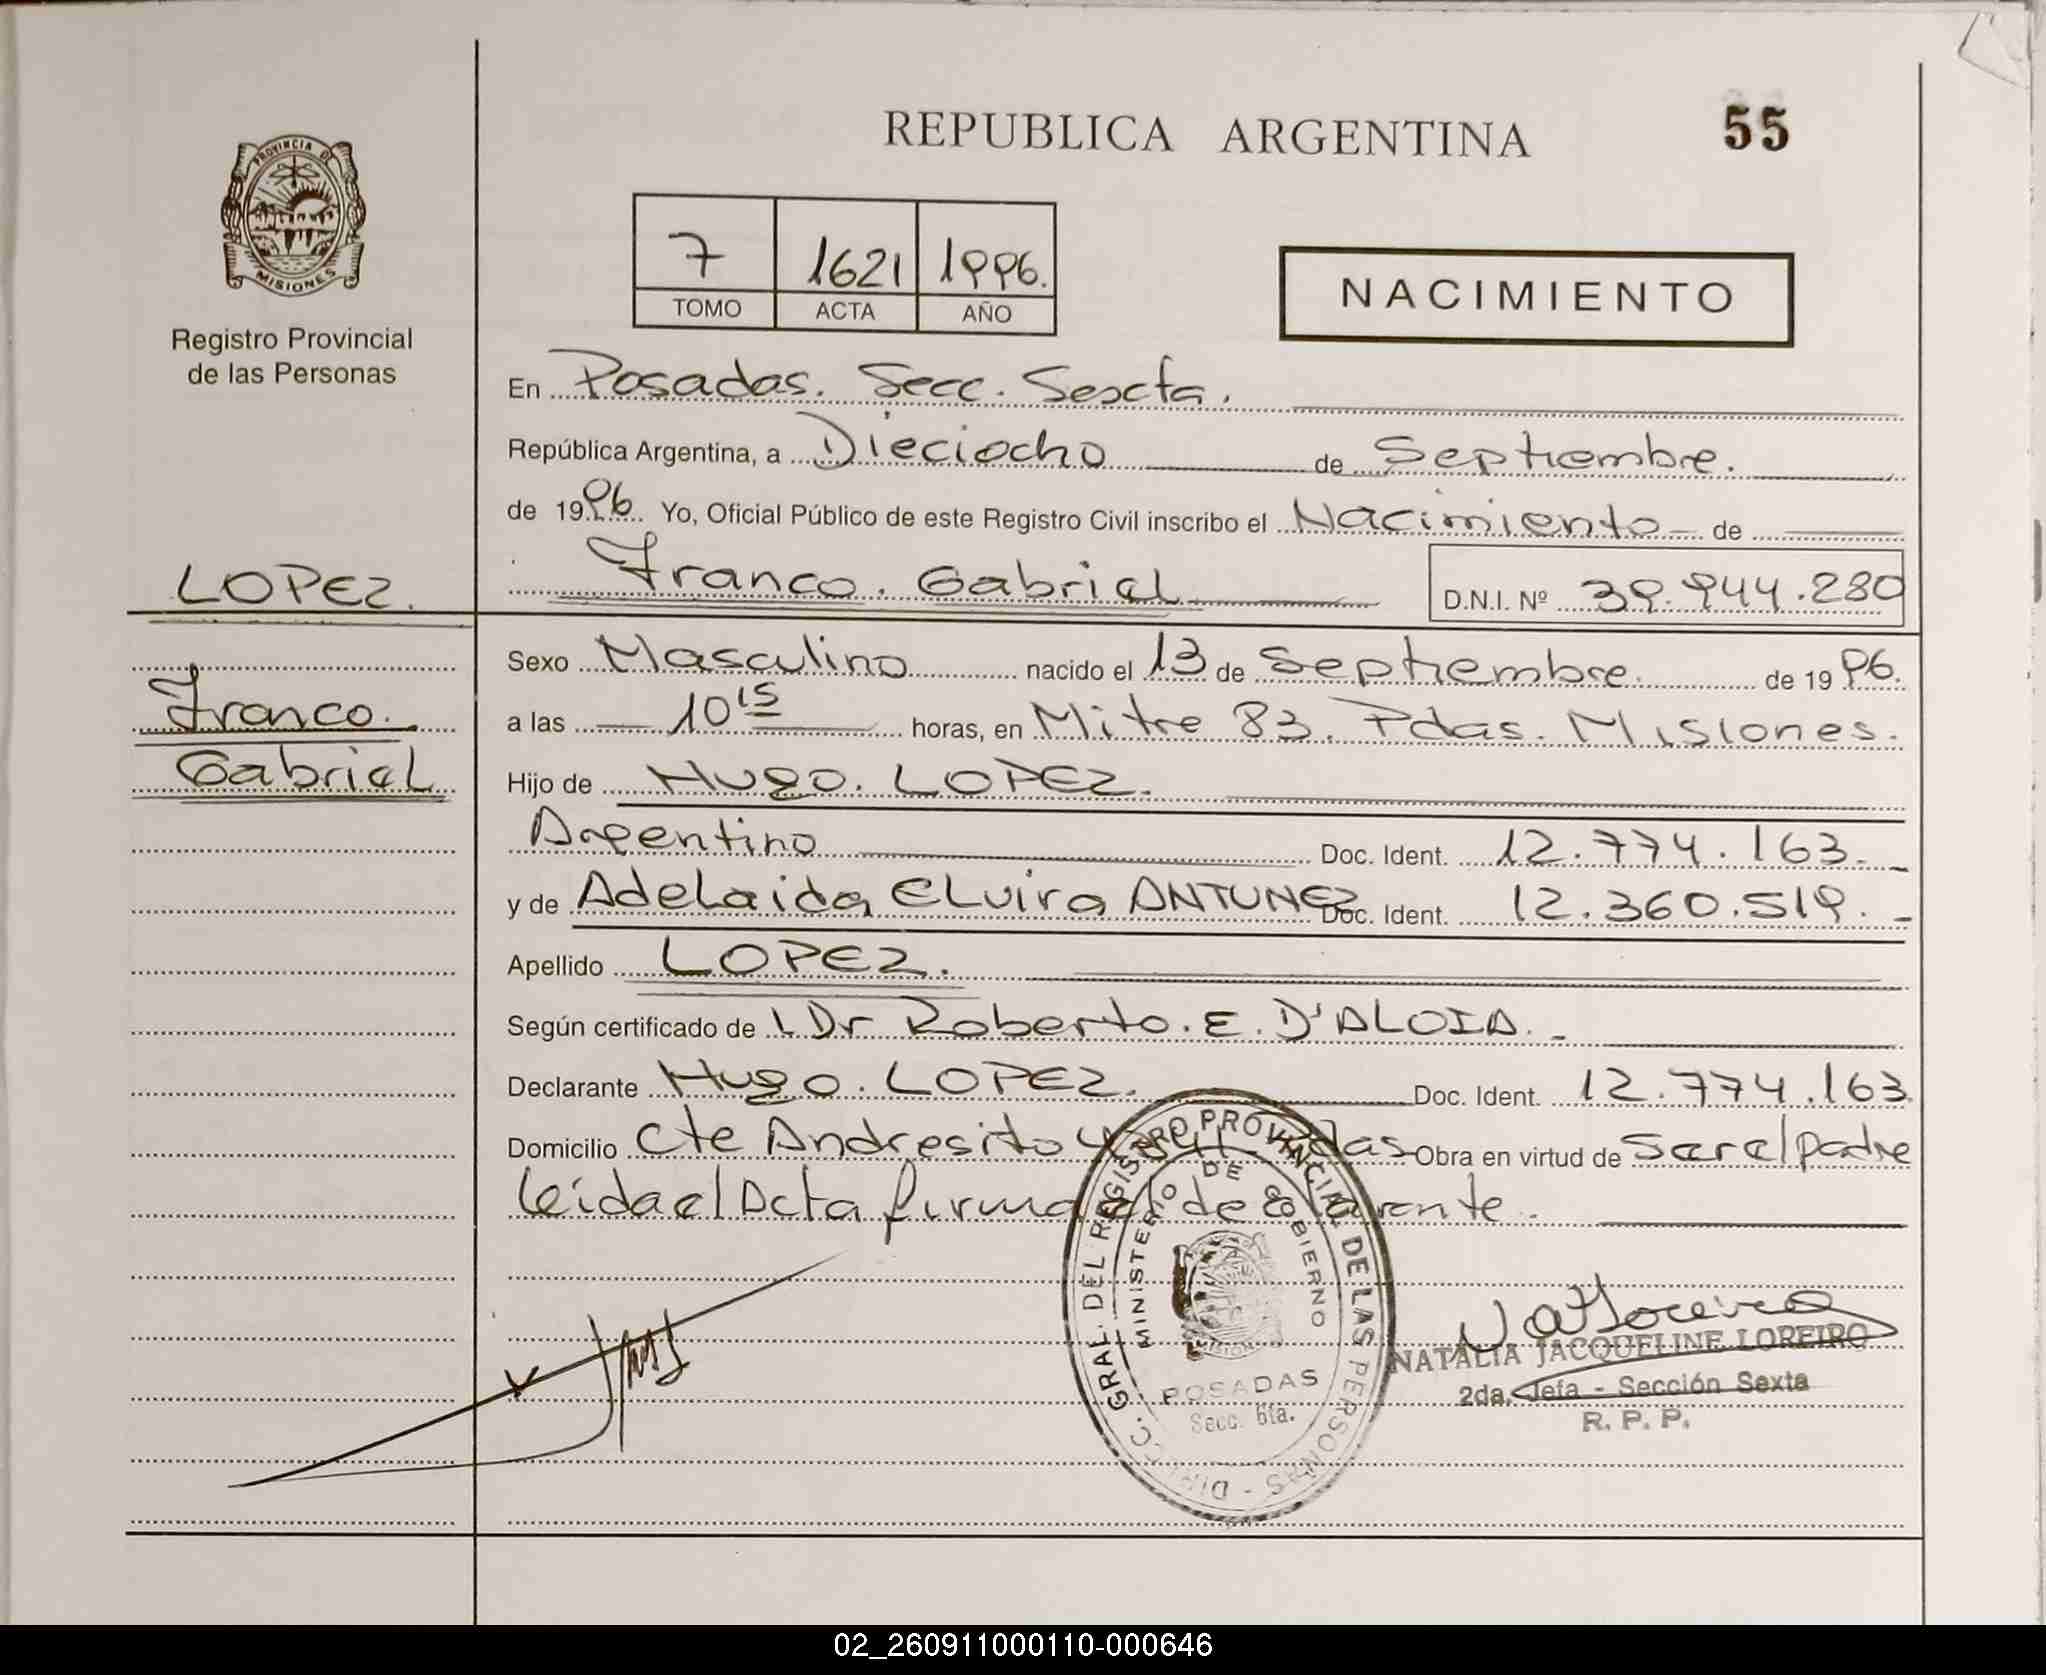 REPUBLICA ARGENTINA
55
PROVINCIA DE
MISIONES
Registro Provincial
de las Personas
7 1621 1996.
TOMO ACTA AÑO
NACIMIENTO
En Posadas. Secc. Sexta.
República Argentina, a Dieciocho de Septiembre.
de 1996. Yo, Oficial Público de este Registro Civil inscribo el Nacimiento de
Franco. Gabriel
D.N.I. Nº 39.944.280
LOPEZ.
Franco.
Gabriel
Sexo Masculino nacido el 13 de Septiembre. de 1996.
a las 10 15 horas, en Mitre 83. Pdas. Misiones.
Hijo de Hugo. LOPEZ.
Argentino Doc. Ident. 12.774.163.
y de Adelaida Elvira ANTUNEZ Doc. Ident. 12.360.519.
Apellido LOPEZ.
Según certificado de l Dr Roberto. E. D'ALOIA.
Declarante Hugo. LOPEZ. Doc. Ident. 12.774.163
Domicilio Cte Andresito Pdas Obra en virtud de ser el padre
leida el Acta firma el declarante.
DIRECC. GRAL. DEL REGISTRO PROVINCIAL DE LAS PERSONAS -
MINISTERIO DE GOBIERNO
POSADAS
Secc. 6ta.
NATALIA JACQUELINE LOREIRO
2da. Jefa - Sección Sexta
R. P. P.
02_260911000110-000646